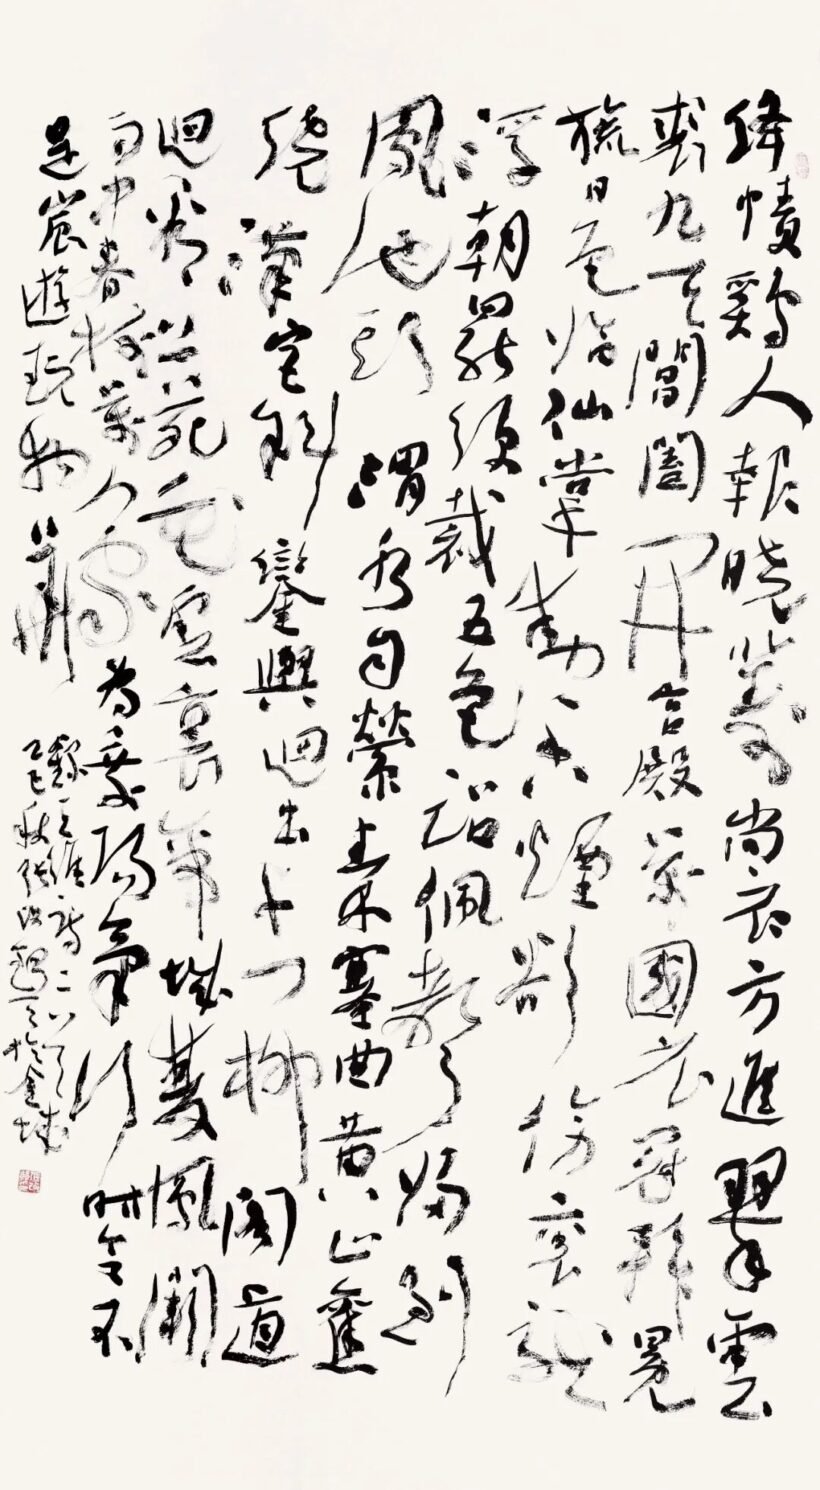 絳幘鷄人報曉籌尚衣方進翠雲
裘九天閶闔開宮殿萬國衣冠拜冕
旒日色臨仙掌動香煙欲傍袞龍
浮朝罷須裁五色詔佩聲歸到
鳳池頭渭水自縈秦塞曲黃山舊
繞漢宮斜鑾輿迥出千門柳閣道
迴看上苑花雲裏帝城雙鳳闕
雨中春樹萬人家為乘陽氣行時令不
是宸遊玩物華
錄王維詩二首
乙巳秋張改琴於金城